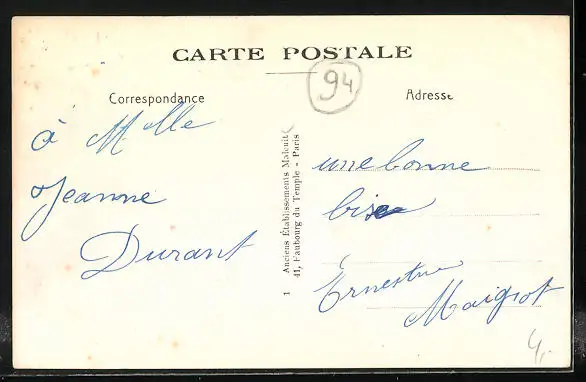 CARTE POSTALE
94
Correspondance
Adresse
à Melle
Jeanne
Durant
1 Anciens Établissements Malcuit
41, Faubourg du Temple - Paris
une bonne
bise
Ernestine
Maigrot
4,-